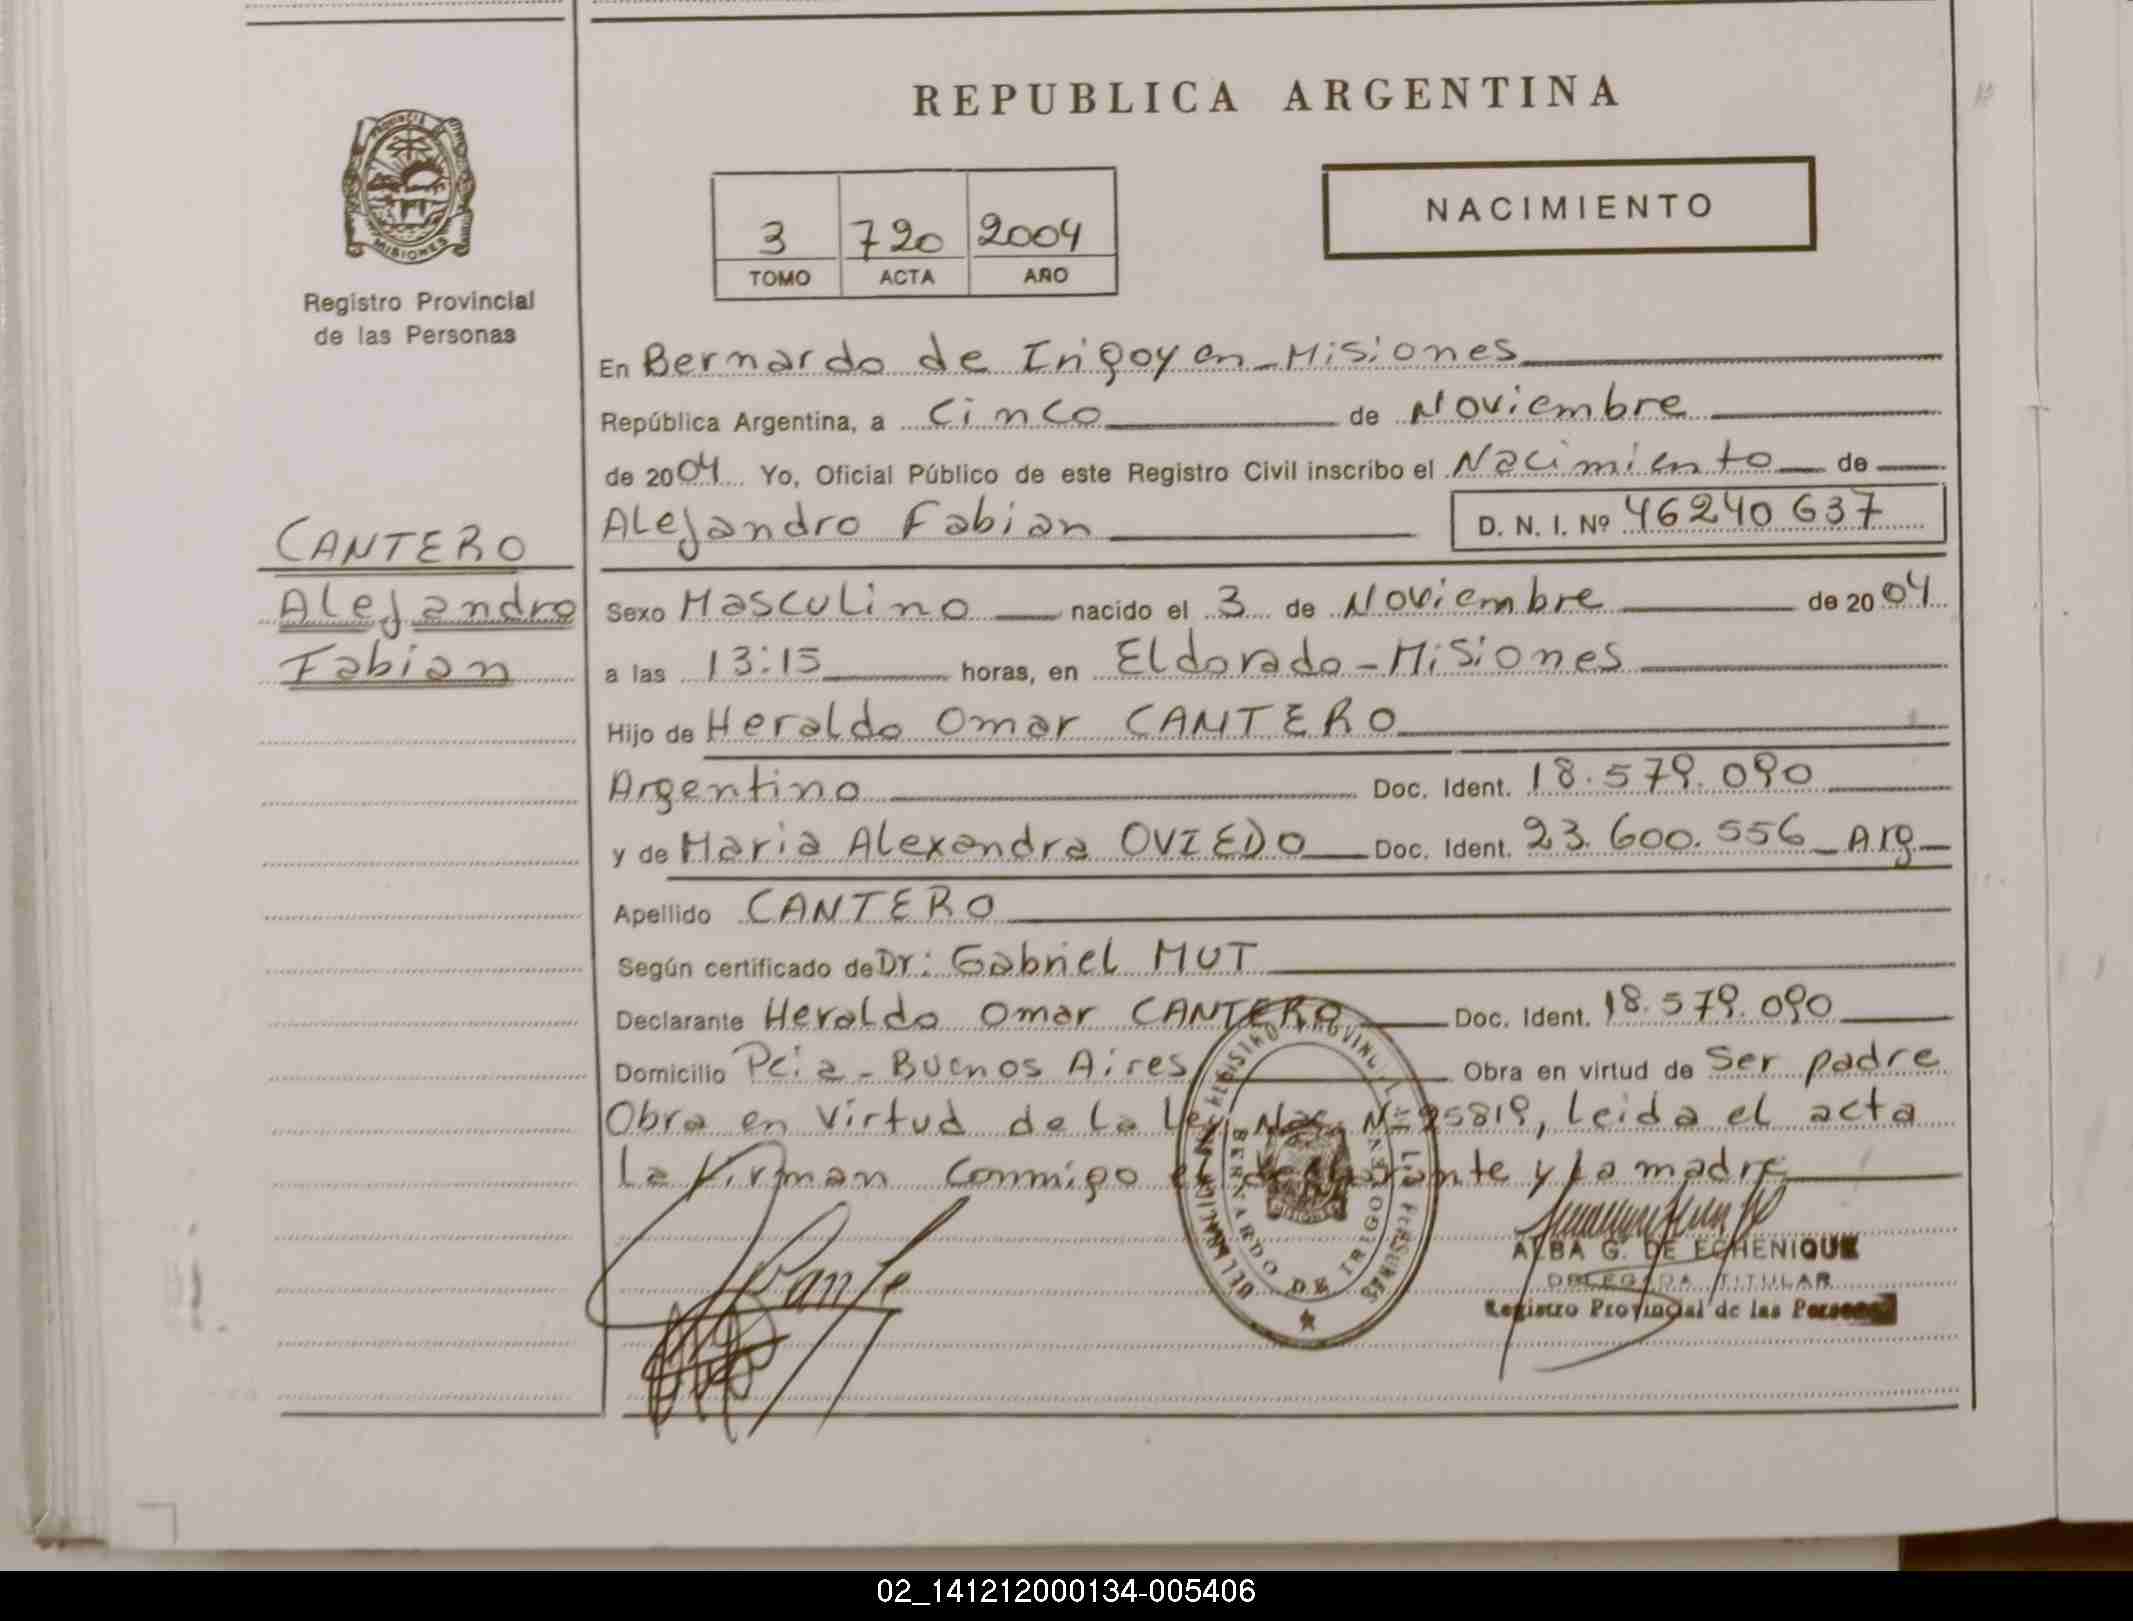 REPUBLICA ARGENTINA
PROVINCIA DE
MISIONES
Registro Provincial
de las Personas
3 720 2004
TOMO ACTA AÑO
NACIMIENTO
En Bernardo de Irigoyen - Misiones
República Argentina, a Cinco de Noviembre
de 2004 Yo, Oficial Público de este Registro Civil inscribo el Nacimiento de
Alejandro Fabian D. N. I. Nº 46240637
CANTERO
Alejandro
Fabian
Sexo Masculino nacido el 3 de Noviembre de 2004
a las 13:15 horas, en Eldorado - Misiones
Hijo de Heraldo Omar CANTERO
Argentino Doc. Ident. 18.579.090
y de Maria Alexandra OVIEDO Doc. Ident. 23.600.556 - Arg
Apellido CANTERO
Según certificado de Dr: Gabriel MUT
Declarante Heraldo Omar CANTERO Doc. Ident. 18.579.090
Domicilio Pcia - Buenos Aires Obra en virtud de Ser padre
Obra en Virtud de La Ley Nac. Nº 25819, Leida el acta
La Firman Conmigo el declarante y La madre
REGISTRO PROVINCIAL DE LAS PERSONAS
BERNARDO DE IRIGOYEN
ALBA G. DE ECHENIQUE
DELEGADA TITULAR
Registro Provincial de las Personas
02_141212000134-005406